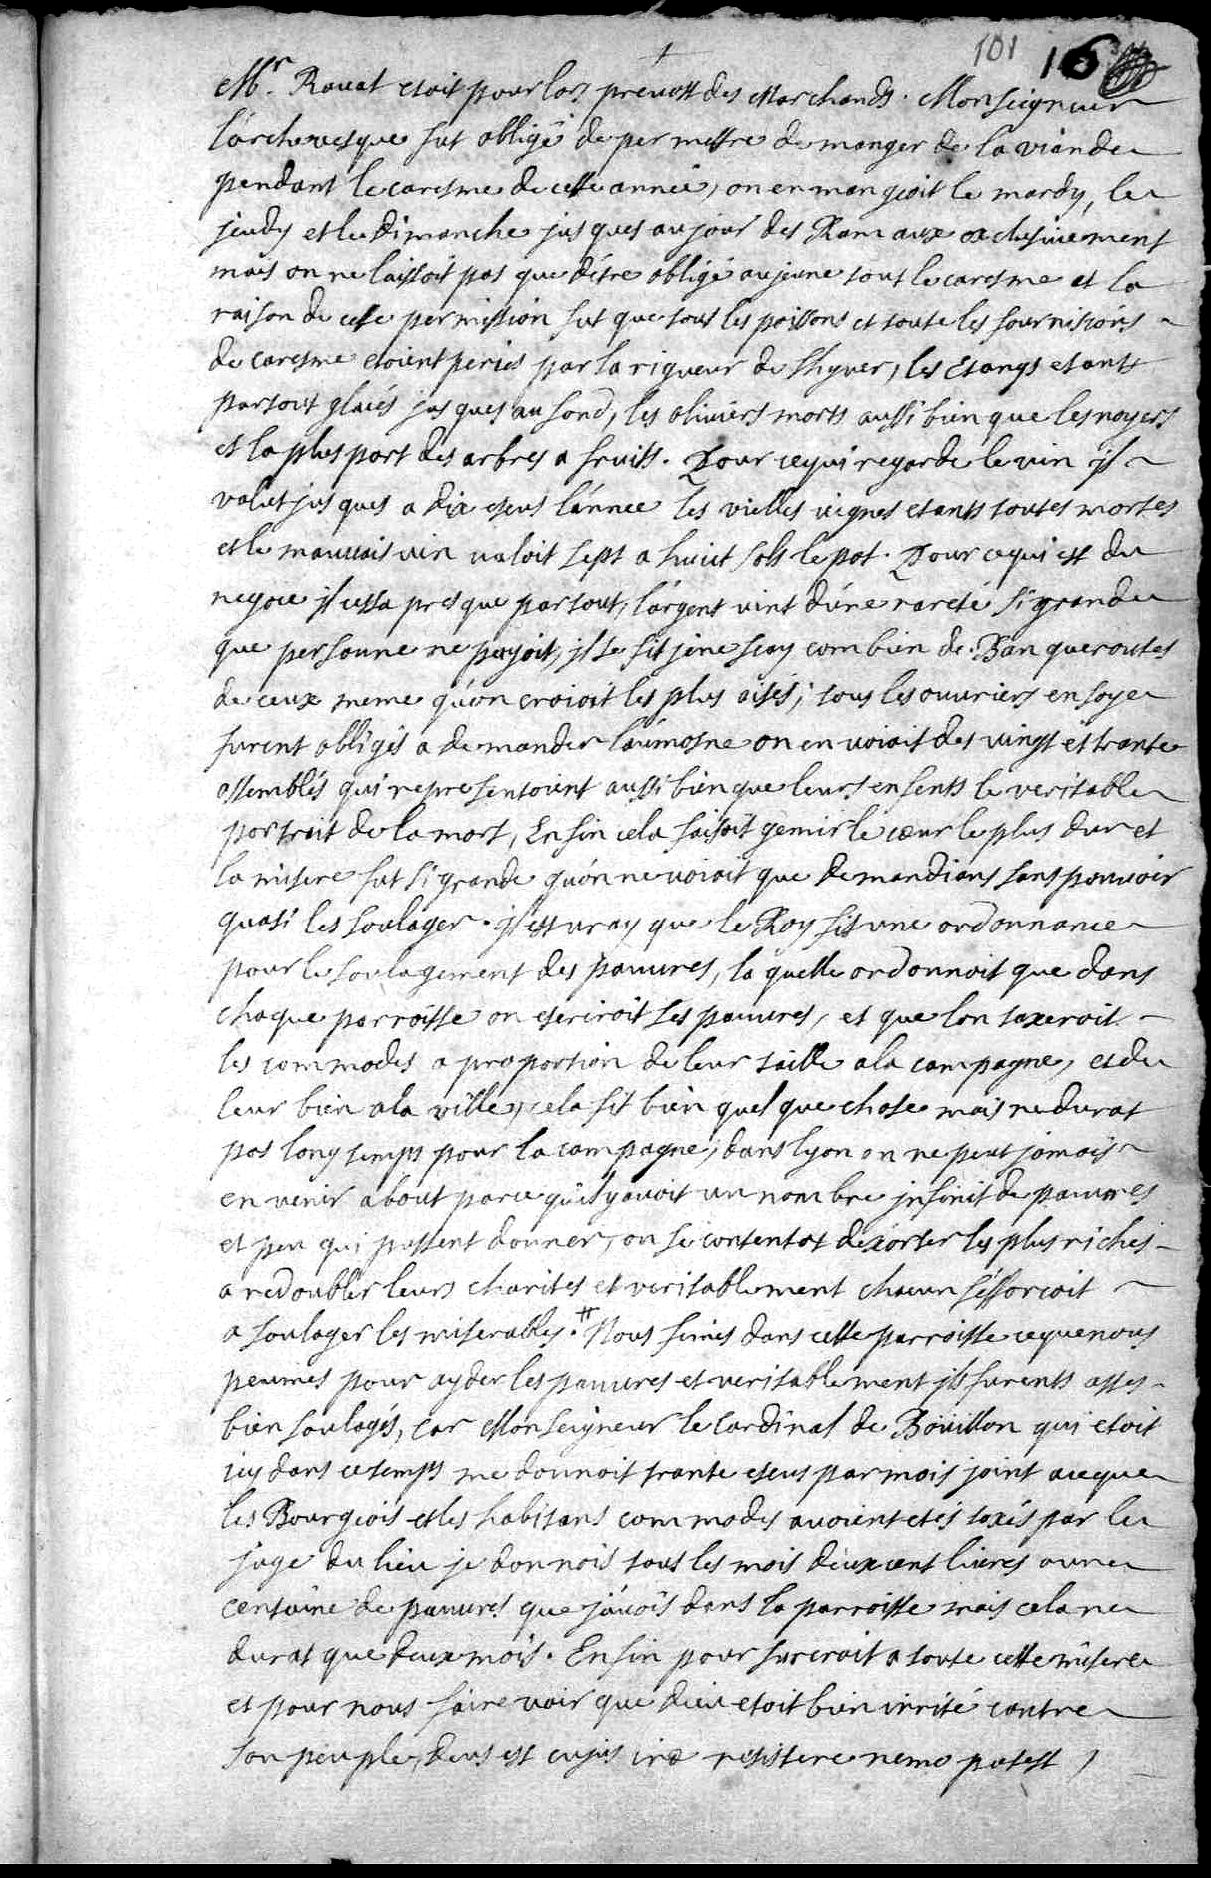 101 16
Mr. Ravat etoit pour lors prevost des Marchands. Monseigneur
l'archevesque fut obligé de permettre de manger de la viande
pendant le caresme de cette année, on en mangioit le mardy, le
jeudy et le Dimanche jusques au jour des Rameaux exclusivement
mais on ne laissoit pas que d'étre obligé au jeune tout le caresme et la
raison de cette permission fut que tous les poissons et toute les fournisions
de caresme etoient peries par la rigueur de l'hyver, les Etangs etants
partout glacés jusques au fond, les oliviers morts aussi bien que les noyers
et la plus part des arbres a fruits. Pour ce qui regarde le vin jl
valut jusques a dix escus l'ánnee les vielles vignes etants toutes mortes
et le mauvais vin valoit sept a huict sols le pot. Pour ce qui est du
negoce jl cessa presque partout, l'argent vint d'une rareté si grande
que personne ne payoit, jl se fit je ne scay combien de Banqueroutes
de ceux meme qu'on croioit les plus aisés; tous les ouvriers en soye
furent obligés a demander l'aúmosne on en voioit des vingt et trante
assemblés qui representoient aussi bien que leurs enfents le veritable
portrait de la mort, Enfin cela faisoit gemir le coeur le plus dur et
la misere fut si grande qu'ón ne voioit que de mandians sans pouvoir
quasi les soulager. jl est vray que le Roy fit une ordonnance
pour le soulagement des pauvres, la quelle ordonnoit que dans
chaque parroisse on escriroit les pauvres, et que lon taxeroit
les commodes a proportion de leur taille a la campagne, et de
leur bien a la ville, cela fit bien quel que chose mais ne durat
pas long temps pour la campagne, dans lyon on ne peut jamais
en venir a bout parce qu'il y avoit un nombre jnfinit de pauvres
et peu qui pussent donner, on se contentat d'exorter les plus riches
a redoubler leurs charites et veritablement chacun s'éfforcoit
a soulager les miserables. # Nous fimes dans cette parroisse ce que nous
peumes pour ayder les pauvres et veritablement jls furents asses
bien soulagés, car Monseigneur le Cardinal de Boüillon qui etoit
icy dans ce temps me donnoit trante escus par mois joint a ce que
les Bourgeois et les habitans commodes avoient etés taxés par le
juge du lieu je donnois tous les mois deux cent livres a une
centaine de pauvres que j'avois dans la parroisse mais cela ne
durat que deux mois. Enfin pour surcroit a toute cette misere
et pour nous faire voir que dieu etoit bien irrité contre
son peuple, deus est cujus irae resistere nemo potest,